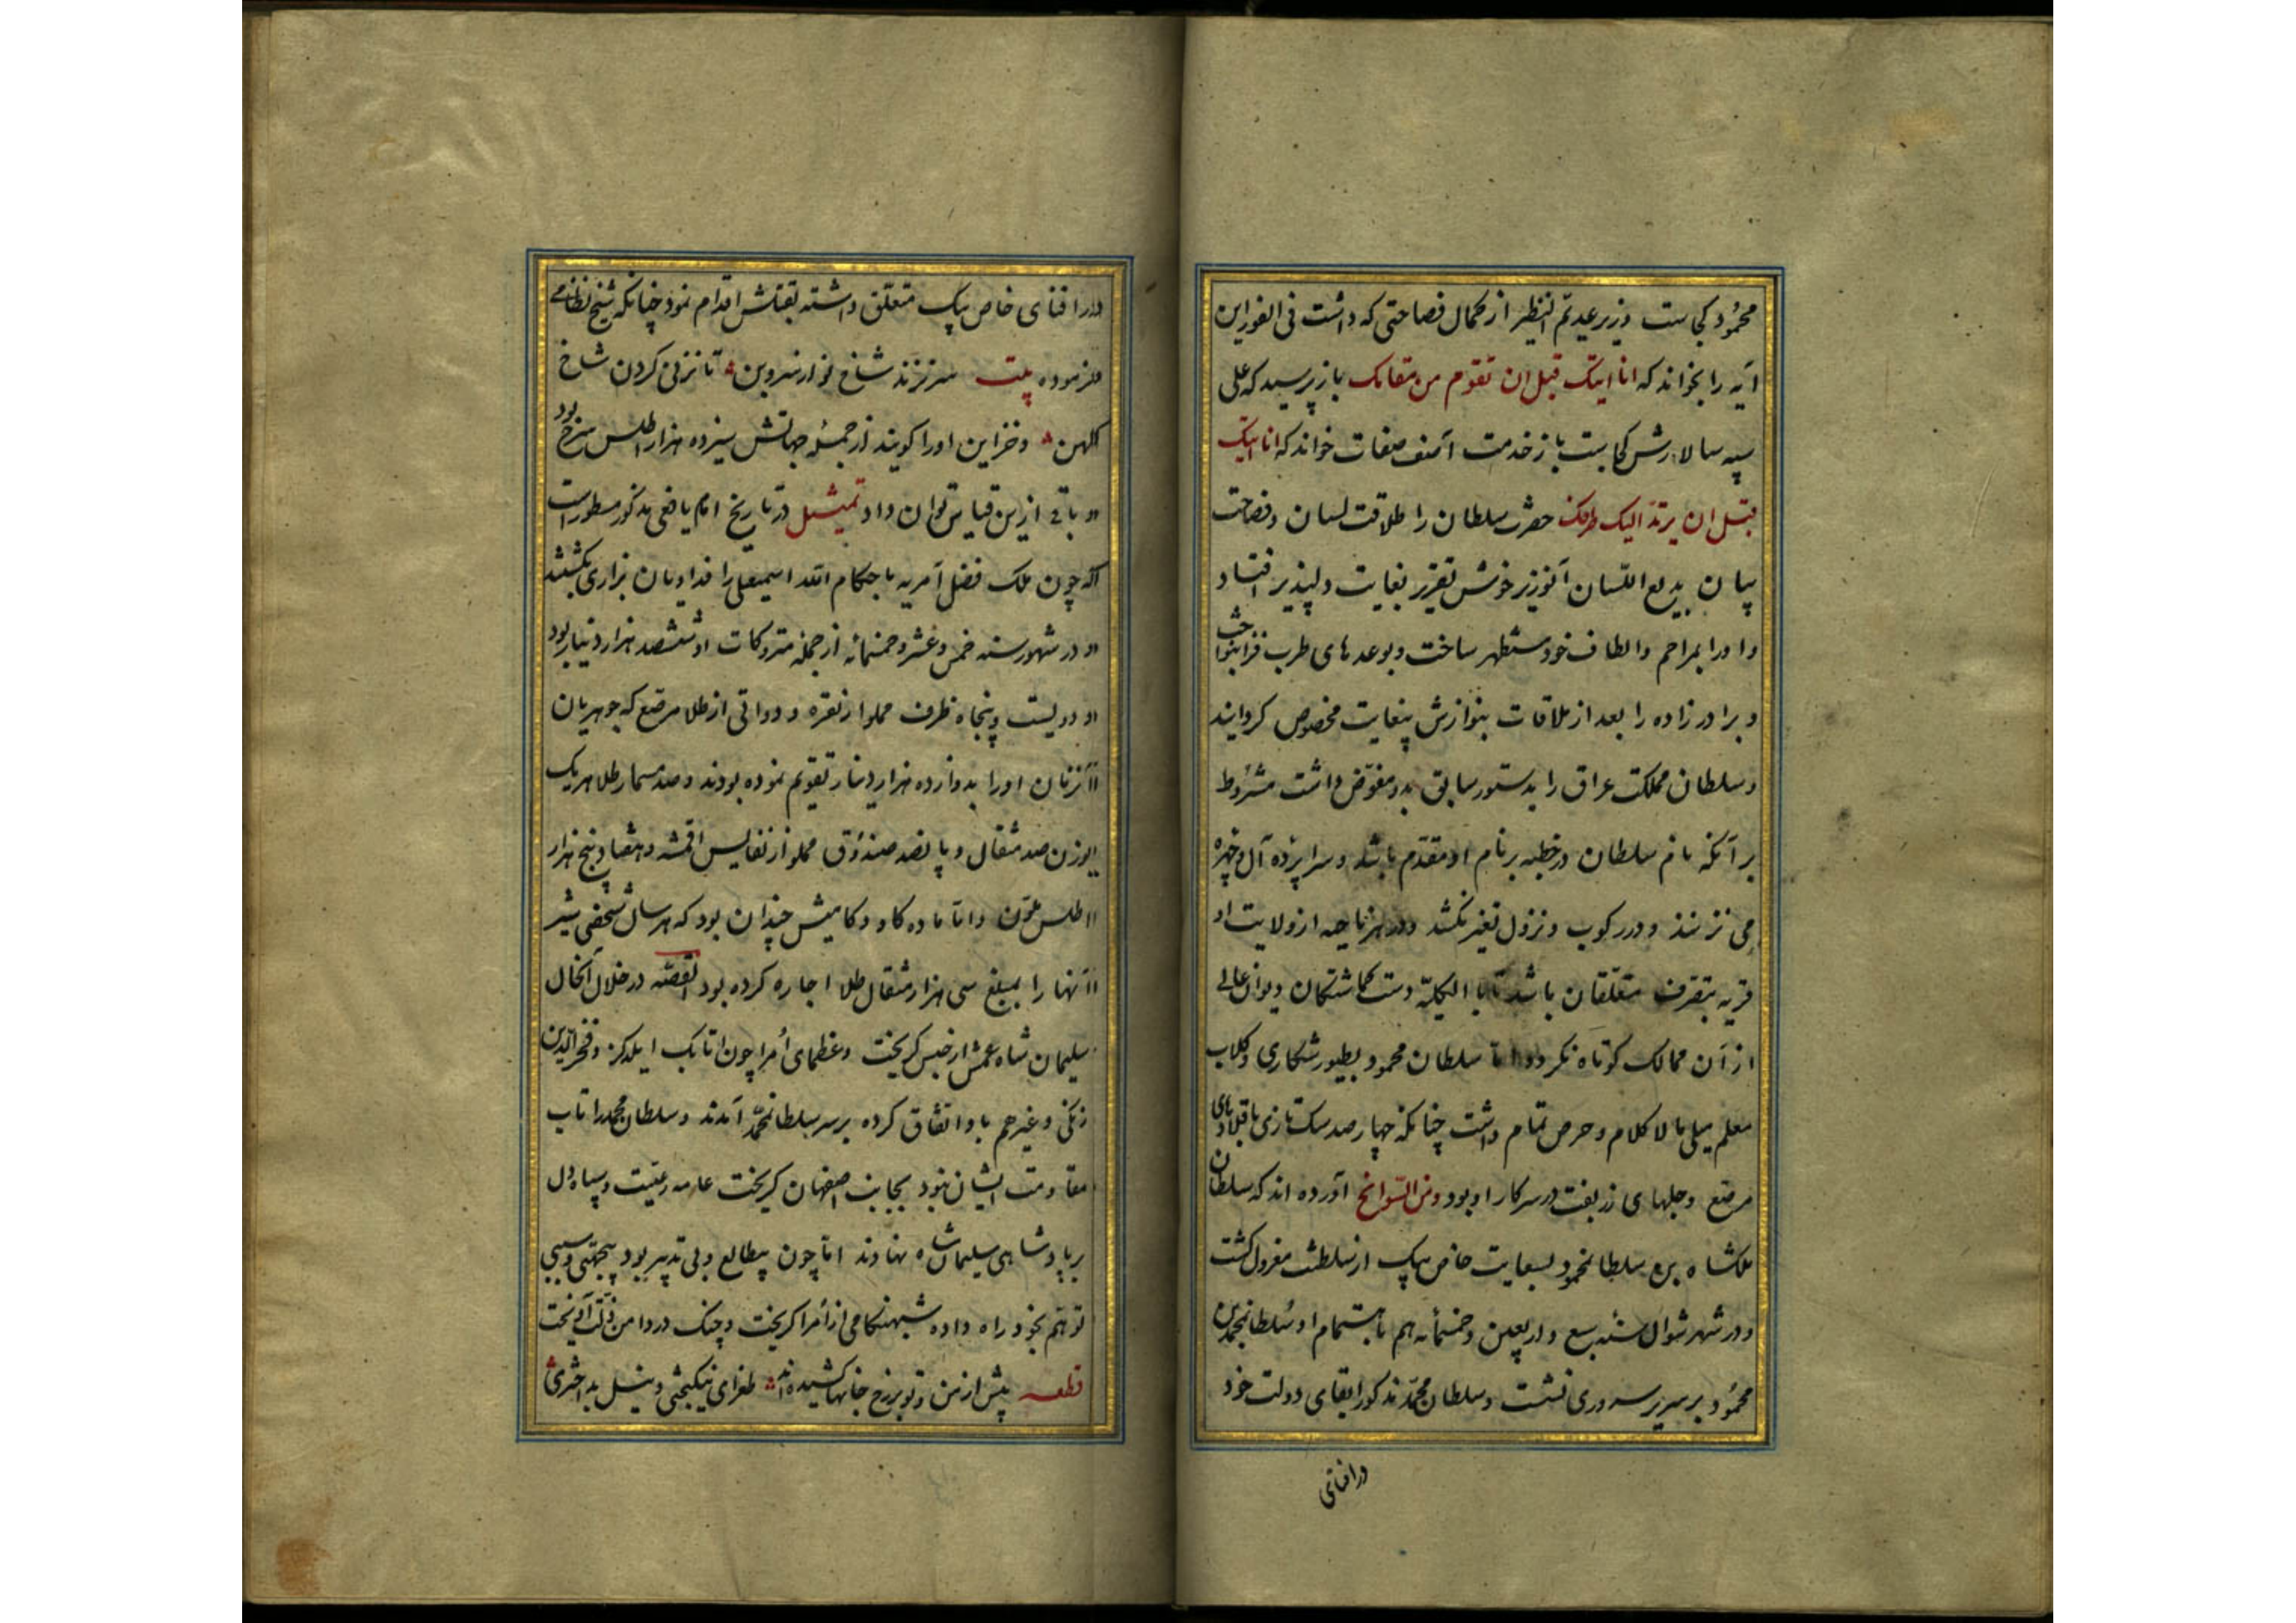 محمود کجاست وزیر عدیم النظیر از کمال فصاحتی که داشت فی الفور این
آیه را بخواند که انا اتیک قبل ان تقوم من مقامک باز پرسید که علی
سپه سالارش کجاست باز خدمت آصف صفات خواند که انا اتیک
قبل ان یرتد الیک طرفک حضرت سلطان را طلاقت لسان و فصاحت
بیان بدیع اللسان آنوزیر خوش تقریر بغایت دلپذیر افتاد
و او را بمراحم و الطاف خود مستظهر ساخت و بوعدهای طرب فزا بنواخت
و برادر زاده را بعد از ملاقات بنوازش بیغایت مخصوص کردانید
و سلطان مملکت عراق را بدستور سابق بدو مفوض داشت مشروط
بر آنکه نام سلطان در خطبه بر نام او مقدم باشد و سراپرده آل و جهره
می نزنند و در رکوب و نزول نفیر نکشد و در هر ناحیه از ولایت او
قریه بتصرف متعلقان باشد تا بالکلیه دست کماشتکان دیوان عالی
از آن ممالک کوتاه نکردد اما سلطان محمود بطیور شکاری و کلاب
معلم میلی مالا کلام و حرص تمام داشت چنانکه چهارصد سک تازی با قلادهای
مرصع و جلهای زربفت در سرکار او بود ومن السوانح آورده اند که سلطان
ملکشاه بن سلطانمحمود بسعایت خاص بیک از سلطنت معزول کشت
و در شهر شوال سنه سبع و اربعین و خمسمأیه هم باهتمام او سلطانمحمد بن
محمود بر سریر سروری نشست و سلطان محمد مذکور ابقای دولت خود
در افنای
در افنای خاص بیک متعلق داشته بقتلش اقدام نمود چنانکه شیخ نظامی
فرموده بیت سر نزند شاخ نو از سرو بن تا نزنی کردن شاخ
کهن و خزاین او را کویند از جمله جهاتش سیزده هزار اطلس سرخ بود
و باقی ازین قیاس توان داد تمثیل در تاریخ امام یافعی مذکور مسطور است
که چون ملک فضل آمر به باحکام الله اسمیعلی را فداویان بزاری بکشتند
و در شهور سنه خمس و عشر و خمسمائه از جمله متروکات او ششصد هزار دینار بود
و دویست و پنجاه ظرف مملو از نقره و دواتی از طلا مرصع که جوهریان
آنزمان او را بدوازده هزار دینار تقویم نموده بودند و صد مسمار طلا هر یک
بوزن صد مثقال و پانصد صندوق مملو از نفایس اقمشه و هفتاد و پنج هزار
اطلس ملون و اما ماده کاو و کامیش چندان بود که هر سال شخصی شیر
آنها را بمبلغ سی هزار مثقال طلا اجاره کرده بود القصه در خلال آنحال
سلیمان شاه عمش از حبس کریخت و عظمای أمرا چون اتابک ایلدکز و فخر الدین
زنکی و غیرهم با او اتفاق کرده بر سر سلطانمحمد آمدند و سلطان محمد را تاب
مقاومت ایشان نبود بجانب اصفهان کریخت عامه رعیت و سپاه دل
بر پادشاهی سلیمانشاه نهادند اما چون بیطالع و بی تدبیر بود بیجهتی و سببی
توهم بخود راه داده شبهنکامی از أمرا کریخت و چنک در دامن ذلت آویخت
قطعه پیش از من و تو بر رخ جانها کشیده اند طغرای نیکبختی و نیل بد اختری